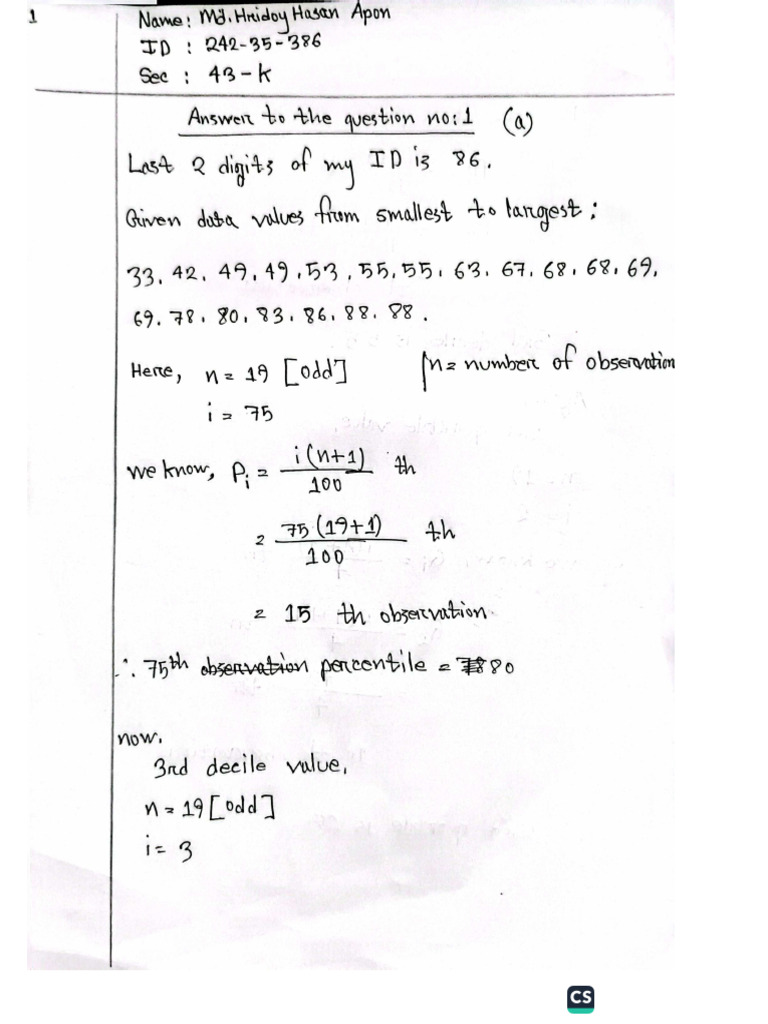 1
Name: Md. Hridoy Hasan Apon
ID : 242-35-386
Sec : 43-K
Answer to the question no:1 (a)
Last 2 digits of my ID is 86.
Given data values from smallest to largest:
33, 42, 49, 49, 53, 55, 55, 63, 67, 68, 68, 69,
69, 78, 80, 83, 86, 88, 88.
Here, n = 19 [odd] n = number of observation
i = 75
we know, Pi = i(n+1)/100 th
= 75(19+1)/100 th
= 15 th observation
∴ 75th observation percentile = 80
now,
3rd decile value,
n = 19 [odd]
i = 3
CS